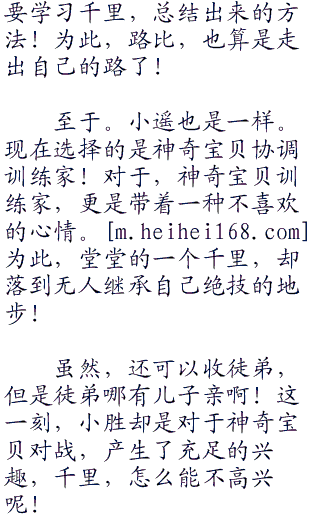 要学习千里，总结出来的方
法！为此，路比，也算是走
出自己的路了！
至于。小遥也是一样。
现在选择的是神奇宝贝协调
训练家！对于，神奇宝贝训
练家，更是带着一种不喜欢
的心情。[m.heihei168.com]
为此，堂堂的一个千里，却
落到无人继承自己绝技的地
步！
虽然，还可以收徒弟，
但是徒弟哪有儿子亲啊！这
一刻，小胜却是对于神奇宝
贝对战，产生了充足的兴
趣，千里，怎么能不高兴
呢！